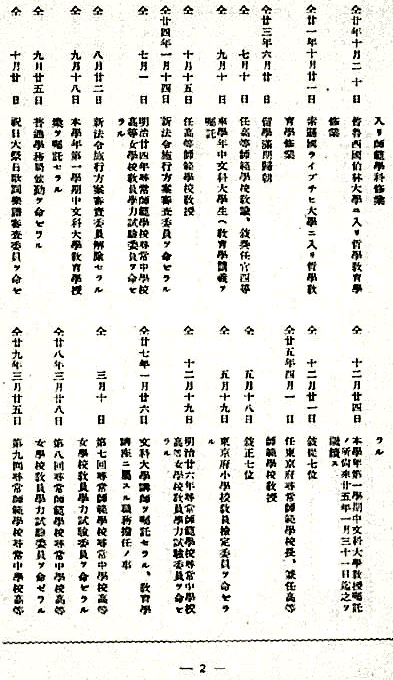 入リ師範學科修業
仝廿年十月二十日 普魯西國伯林大學ニ入リ哲學教育學
修業
仝廿一年十月廿一日 索遜國ライプチヒ大學ニ入リ哲學教
育學修業
仝廿三年六月廿日 留學滿期歸朝
仝 七月十日 任高等師範學校教諭、敍奏任官四等
仝 九月十日 來學年中文科大學生ヘ教育學講義ヲ
囑託
仝 十月十五日 任高等師範學校教授
仝廿四年一月十四日 新法令施行方案審査委員ヲ命セラル
仝 七月一日 明治廿四年尋常師範學校尋常中學校
高等女學校教員學力試驗委員ヲ命セ
ラル
仝 八月廿二日 新法令施行方案審査委員解除セラル
仝 九月十八日 本學年第一學期中文科大學教育學教授
ヲ囑託セラル
仝 九月廿五日 普通學務局勤ヲ命セラル
仝 十月廿日 祝日大祭日歌詞樂譜審査委員ヲ命セ
ラル
仝 十二月廿四日 本學年第一學期中文科大學教授囑託
ノ所尙來廿五年一月三十一日迄之ヲ
繼續ス
仝 十二月廿一日 敍從七位
仝廿五年四月一日 任東京府尋常師範學校長、兼任高等
師範學校教授
仝 五月十八日 敍正七位
仝 五月十九日 東京府小學校教員檢定委員ヲ命セラ
ル
仝 十二月十九日 明治廿六年尋常師範學校尋常中學校
高等女學校教員學力試驗委員ヲ命セ
ラル
仝廿七年一月廿六日 文科大學講師ヲ囑託セラル、教育學
講座ニ屬スル職務擔任ノ事
仝 三月十日 第七回尋常師範學校尋常中學校高等
女學校教員學力試驗委員ヲ命セラル
仝廿八年三月廿八日 第八回尋常師範學校尋常中學校高等
女學校教員學力試驗委員ヲ命セラル
仝廿九年三月廿五日 第九回尋常師範學校尋常中學校高等
— 2 —